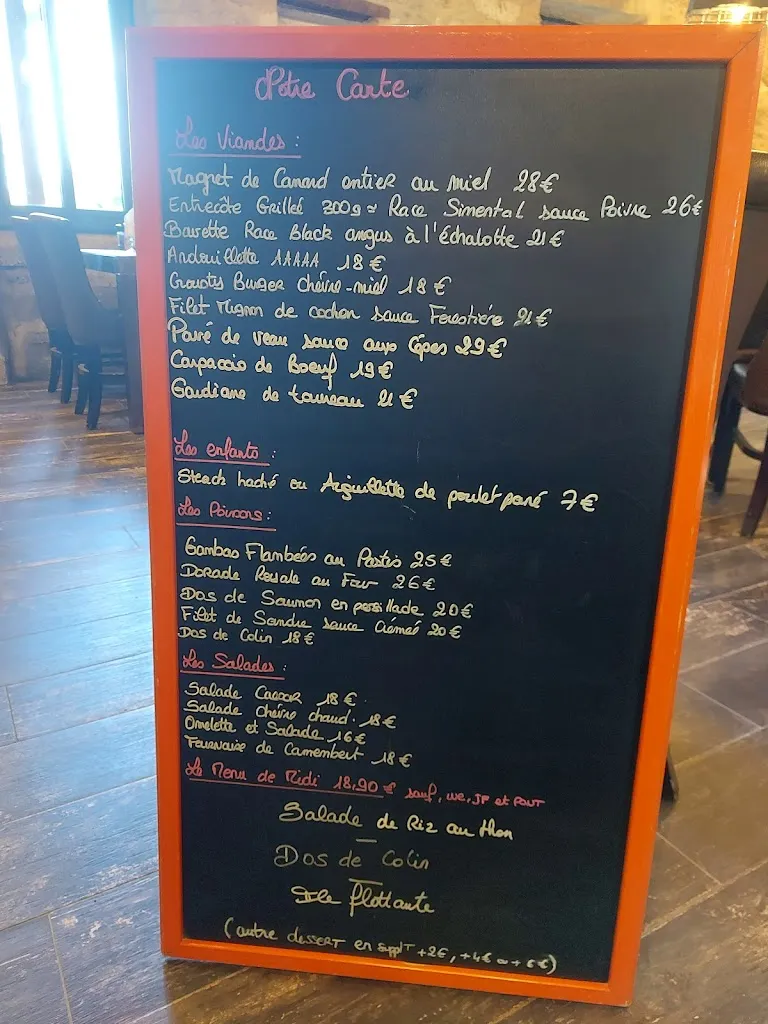 Notre Carte
Les Viandes :
Magret de Canard entier au miel 28€
Entrecôte Grillée 300g ≈ Race Simental sauce Poivre 26€
Bavette Race Black angus à l'échalotte 21€
Andouillette AAAAA 18€
Crousty Burger chèvre-miel 18€
Filet Mignon de cochon sauce Forestière 21€
Pavé de veau sauce aux Cèpes 29€
Carpaccio de Boeuf 19€
Gardiane de taureau 21€
Les enfants :
Steack haché ou Aiguillette de poulet pané 7€
Les Poissons :
Gambas Flambées au Pastis 25€
Dorade Royale au Four 26€
Dos de Saumon en persillade 20€
Filet de Sandre sauce Crémée 20€
Dos de Colin 18€
Les Salades :
Salade Caesar 18€
Salade Chèvre chaud. 18€
Omelette et Salade 16€
Fournaise de Camembert 18€
Le Menu de Midi 18,90€ sauf, WE, JF et PONT
Salade de Riz au thon
Dos de Colin
Ile flottante
(autre DESSERT en supplT +2€, +4€ ou +6€)